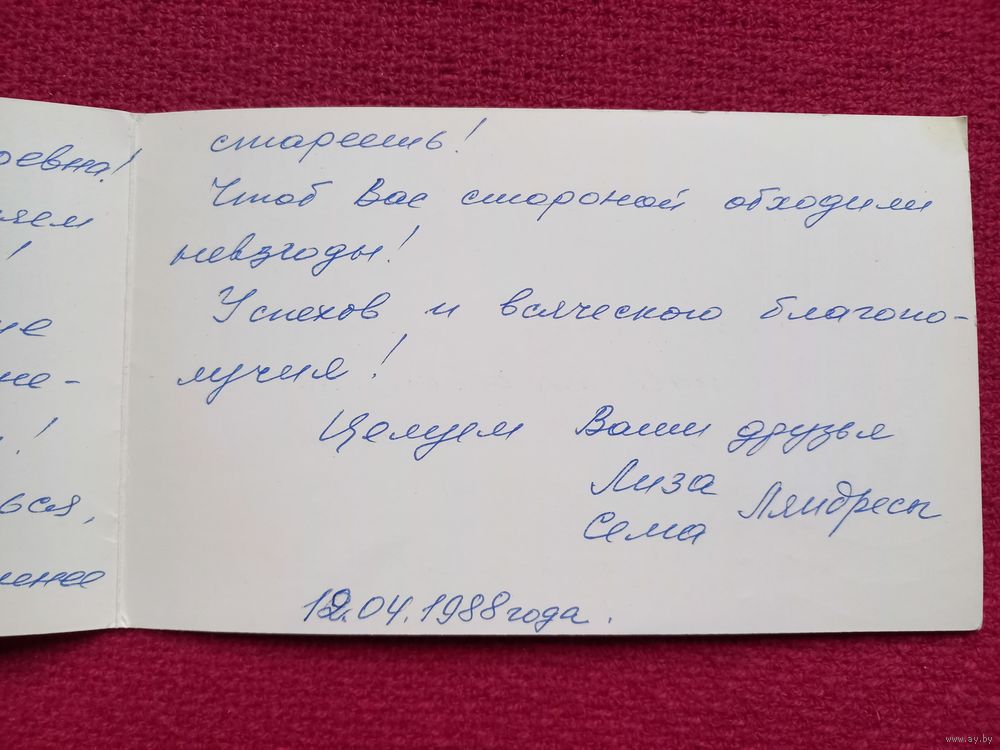 оевна!
яем
!
ие
не-
!
ься,
менее
стареешь!
Чтоб Вас стороной обходили
невзгоды!
Успехов и всяческого благопо-
лучия!
Целуем Ваши друзья
Лиза
Сема Ляндресы
12.04.1988 года.
www.ay.by